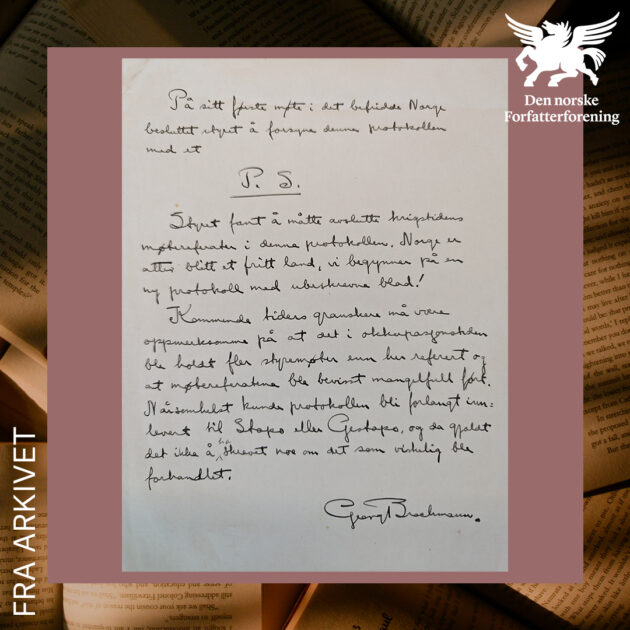 Den norske
Forfatterforening
På sitt første møte i det befridde Norge
besluttet styret å forsyne denne protokollen
med et
P. S.
Styret fant å måtte avslutte krigstidens
møtereferater i denne protokollen. Norge er
atter blitt et fritt land, vi begynner på en
ny protokoll med ubeskrevne blad!
Kommende tiders granskere må være
oppmerksomme på at det i okkupasjonstiden
ble holdt fler styremøter enn her referert og
at møtereferatene ble bevisst mangelfull ført.
Nårsomhelst kunde protokollen bli forlangt inn=
levert til Stapo eller Gestapo, og da gjaldt
det ikke å ha skrevet noe om det som virkelig ble
forhandlet.
Georg Brochmann.
FRA ARKIVET